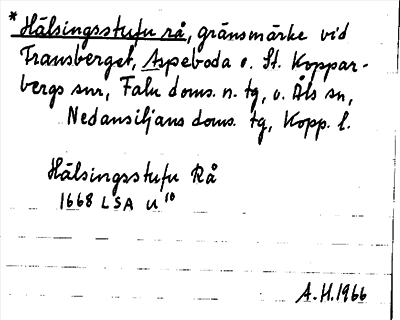 * Hälsingsstufu rå, gränsmärke vid
Transberget, Aspeboda o. St. Koppar-
bergs snr, Falu doms. n. tg, o. Åls sn,
Nedansiljans doms. tg, Kopp. l.
Hälsingsstufu Rå
1668 LSA U 10
A.H. 1966